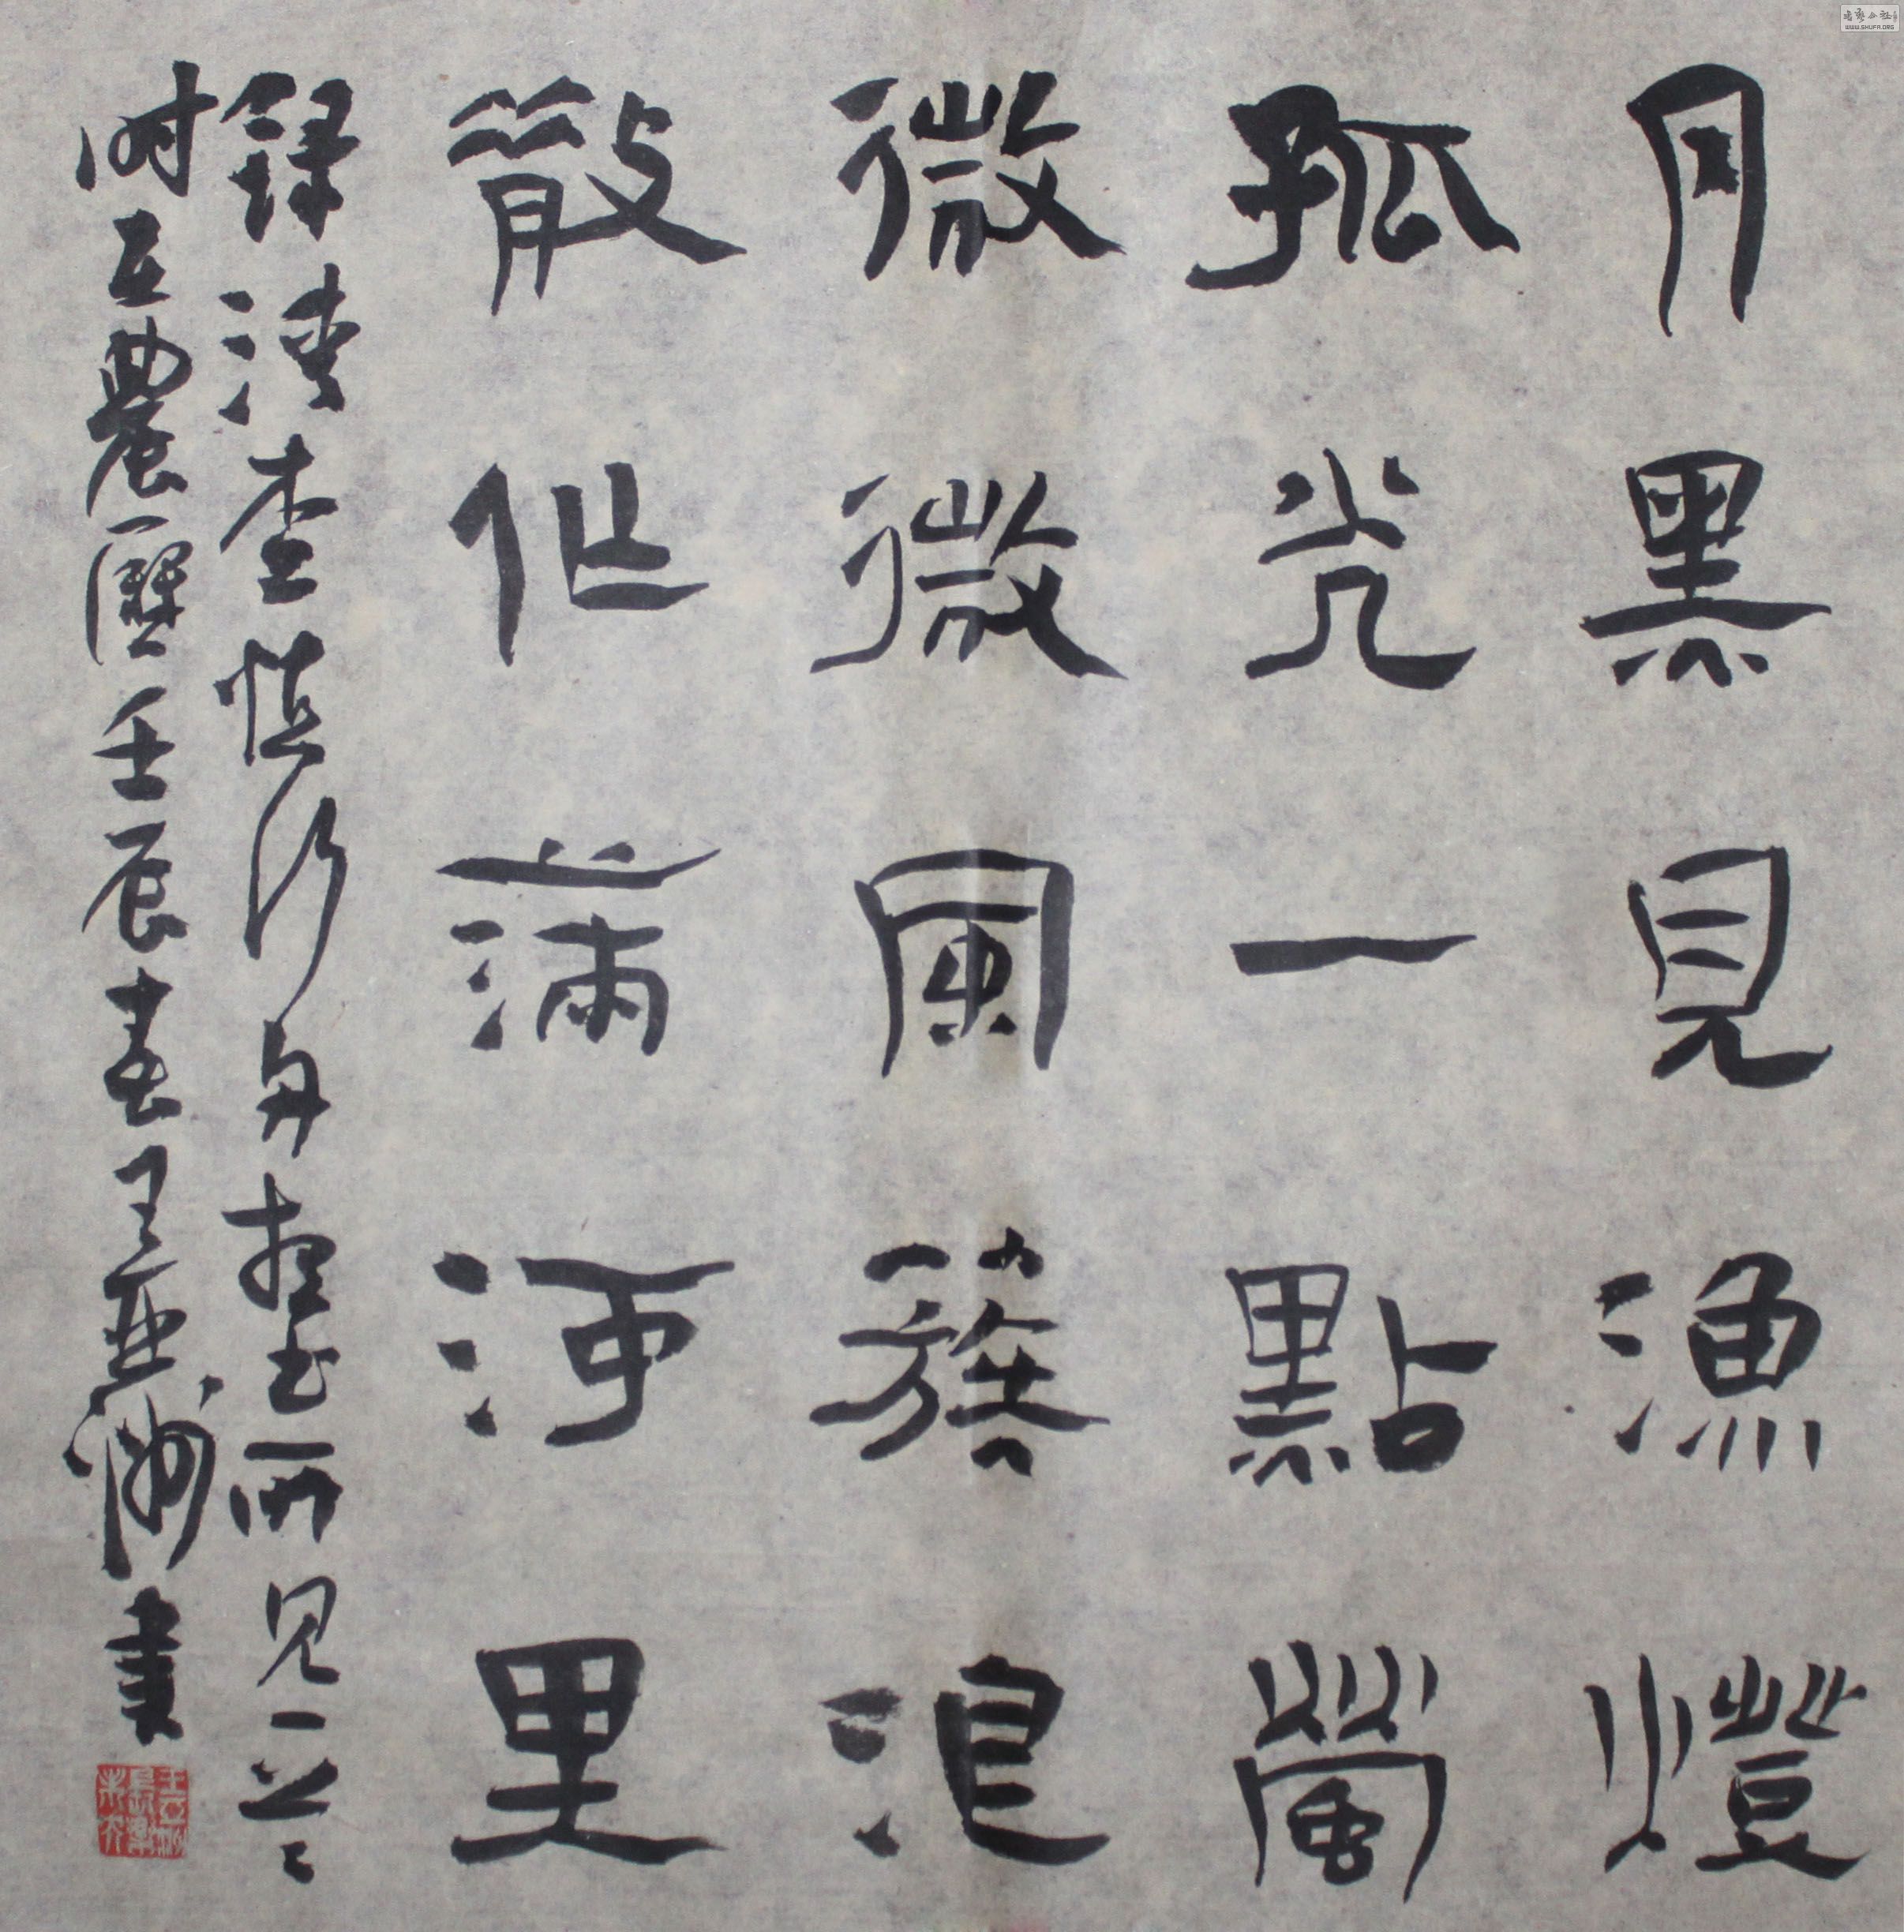 月黑見漁燈
孤光一點螢
微微風簇浪
散作滿河星
錄清查慎行舟夜書所見一首
时在農曆壬辰春王亚洲書
WWW.SHUFA.ORG